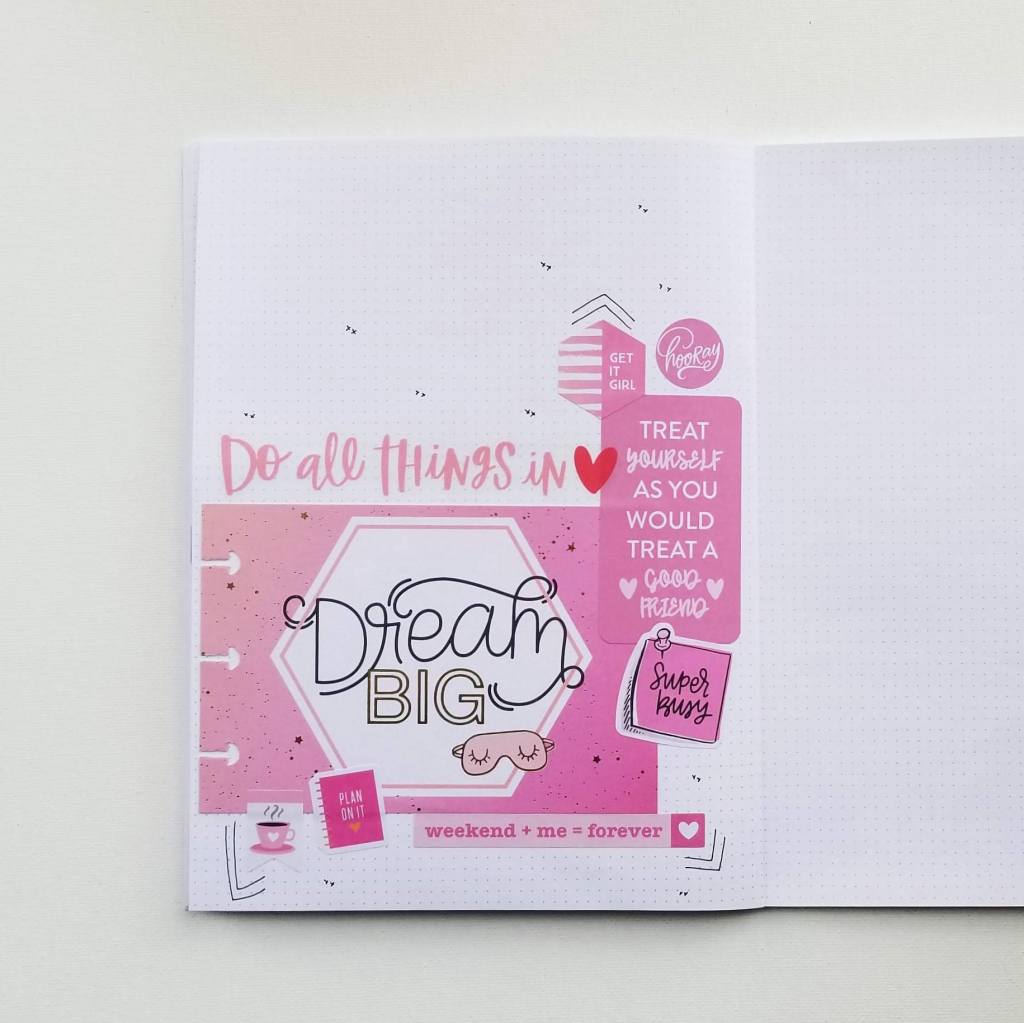 GET
IT
GIRL
hooray
Do all THINGS in
TREAT
YOURSELF
AS YOU
WOULD
TREAT A
GOOD
FRIEND
Dream
BIG
Super
Busy
PLAN
ON IT
weekend + me = forever